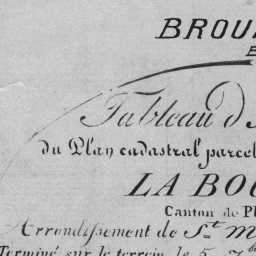 BROU
E
Tableau d'
du Plan cadastral parcel
LA BO
Canton de Pl
Arrondissement de St. M
Terminé sur le terrain le 5 7